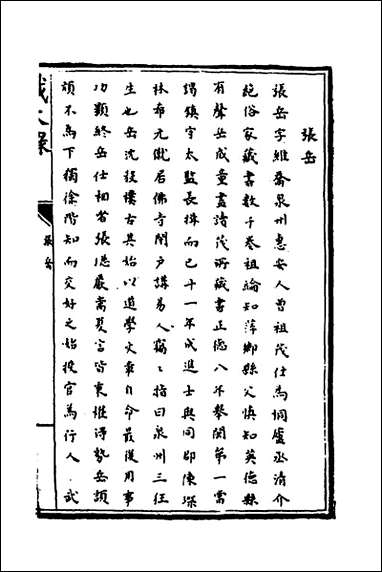 張岳
張岳字維喬泉州惠安人曾祖茂仕為桐廬丞清介
絕俗家藏書數千卷祖綸知萍鄉縣父慎知英德縣
有聲岳成童盡讀茂所藏書正德八年舉閩第一當
謁鎮守太監長揖而已十一年成進士與同郡陳琛
林希元僦居佛寺閉戶講易人竊竊指曰泉州三狂
生也岳沈毅樸古其始以道學火奉自命最後用事
功顯終岳仕相者張璁嚴嵩夏言皆柬權得勢岳頡
頏不為下獨徐階知而交好之始授官為行人武
張岳